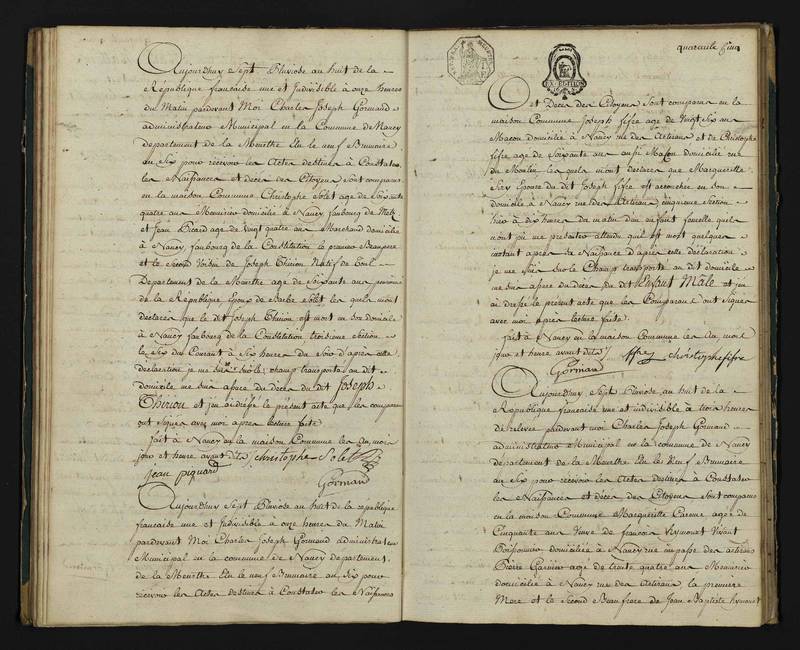 Aujourdhuy Sept Pluviose an huit de la
République francaise une et Indivisible à onze heures
du Matin pardevant Moi Charles Joseph Gormand
administrateur Municipal en la Commune de Nancy
departement de la Meurthe Elu le neuf Brumaire
an Six pour recevoir les Actes destinés à Constater
les Naissances et deces des Citoyens Sont comparus
en la maison Commune Christophe Solet age de Soixante
quatre ans Menuisier domicilié à Nancy faubourg de Metz
et Jean Picard age de vingt quatre ans Marchand domicilié
à Nancy, faubourg de la Constitution le premier Beaupere
et le Second Voisin de Joseph Thirion Natif de Toul
Departement de la Meurthe age de Soixante ans
de la République Epoux de Barbe Solet les quels m'ont
declarés que le dit Joseph Thirion est mort en son domicile
à Nancy faubourg de la Constitution troisieme Section
le Six du Courant à Six heures du Soir d'après cette
déclaration je me suis sur le champ transporté au dit
domicile me suis assuré du décès du dit Joseph
Thirion et j'en ai dréssé le présent acte que les comparans
ont Signés avec moi apres lecture faite
fait à Nancy en la maison Commune les an mois
jour et heure avant dits christophe Solet
jean piquard
Gormand
Aujourdhuy Sept Pluviose an huit de la republique
francaise une et Indivisible à onze heures du Matin
pardevant Moi Charles Joseph Gormand administrateur
Municipal en la commune de Nancy departement
de la Meurthe Elu le neuf Brumaire an Six pour
recevoir les Actes destinés à Constater les Naissances
quarante cinq
Et Décès des Citoyens Sont comparus en la
maison Commune Joseph fifre age de Vingt Six ans
Macon domicilié à Nancy rue des Artisans et de Christophe
fifre age de Soixante ans aussi Maçon domicilié rue
du Moulin les quels m'ont declarés que Marguerite
Epouse du dit Joseph fifre est accouchée en son
domicile à Nancy rue des Artisans cinquieme Section
hier à dix heures du matin d'un enfant femelle quels
n'ont pu me presenter attendu que est mort quelques
instant apres Sa Naissance d'après cette déclaration
je me Suis sur le Champ transporté au dit domicile
me suis assuré du Décès du dit Enfant Mâle et j'en
ai dréssé le présent acte que les Comparans ont Signés
avec moi apres lecture faite
fait à Nancy en la maison Commune les an mois
jour et heure avant dits christophe fifre
Gormand
Aujourdhuy Sept Pluviose an huit de la
République francaise une et indivisible à trois heures
de relevée pardevant moi Charles Joseph Gormand
administrateur Municipal en la commune de Nancy
departement de la Meurthe Elu le Neuf Brumaire
an Six pour recevoir les Actes destinés à Constater
les Naissances et deces des Citoyens, sont comparus
en la maison Commune Marguerite Carême agée de
Cinquante ans Veuve de francois Vivant
domiciliée à Nancy rue impasse des artisans
Pierre Garnier age de trente quatre ans Menuisier
domicilié à Nancy rue des Artisans la premiere
Mere et le Second Beaufrere de Jean Baptiste